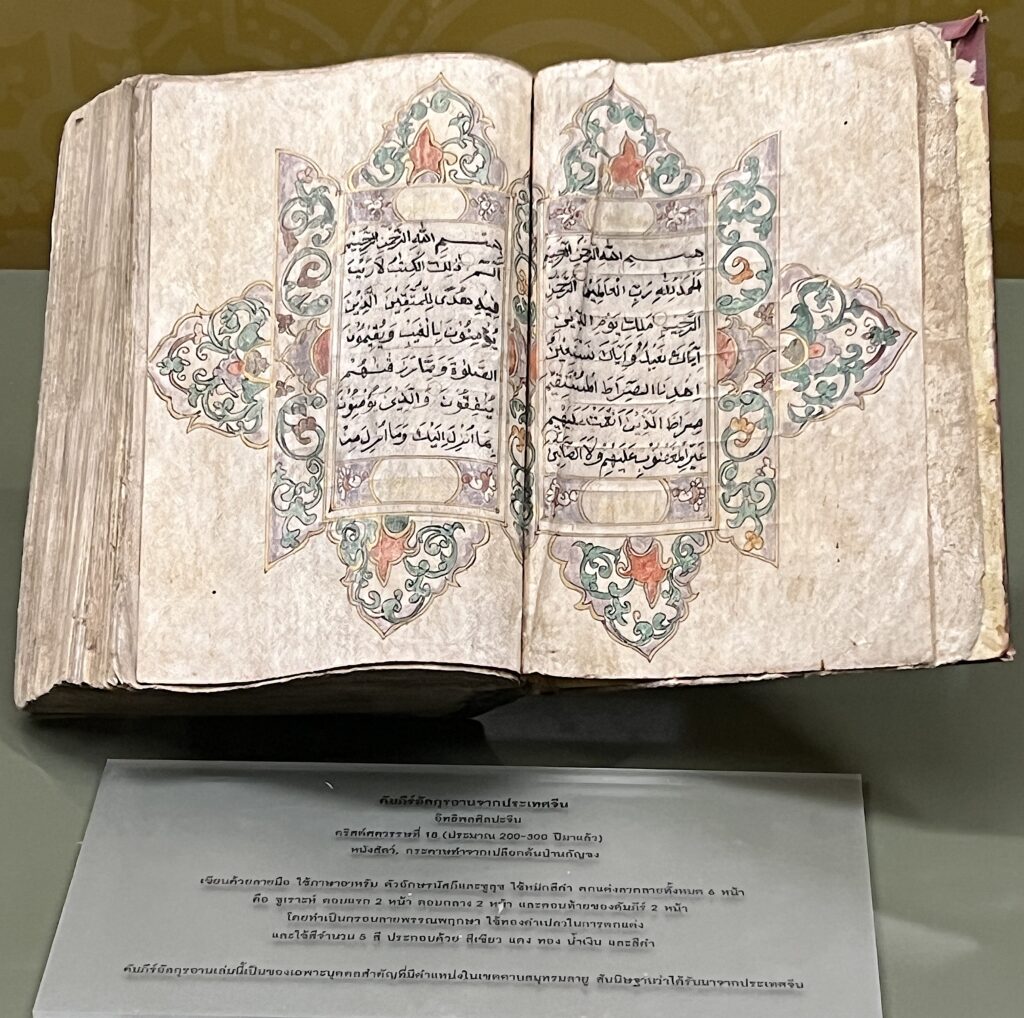 بسم الله الرحمن الرحيم
الحمد لله رب العالمين الرحمن
الرحيم ملك يوم الدين
اياك نعبد واياك نستعين
اهدنا الصراط المستقيم
صراط الذين انعمت عليهم
غير المغضوب عليهم ولا الضالين
بسم الله الرحمن الرحيم
الم ذلك الكتب لا ريب
فيه هدى للمتقين الذين
يؤمنون بالغيب ويقيمون
الصلوة ومما رزقنهم
ينفقون والذين يؤمنون
بما انزل اليك وما انزل من
คัมภีร์อัลกุรอานจากประเทศจีน
อิทธิพลศิลปะจีน
คริสต์ศตวรรษที่ 18 (ประมาณ 200-300 ปีมาแล้ว)
หนังสัตว์, กระดาษทำจากเปลือกต้นป่านกัญชง
เขียนด้วยลายมือ ใช้ภาษาอาหรับ ตัวอักษรนัสคีและซูลุซ ใช้หมึกสีดำ ตกแต่งลวดลายทั้งหมด 6 หน้า
คือ ซูเราะห์ ตอนแรก 2 หน้า ตอนกลาง 2 หน้า และตอนท้ายของคัมภีร์ 2 หน้า
โดยทำเป็นกรอบลายพรรณพฤกษา ใช้ทองคำเปลวในการตกแต่ง
และใช้สีจำนวน 5 สี ประกอบด้วย สีเขียว แดง ทอง น้ำเงิน และสีดำ
คัมภีร์อัลกุรอานเล่มนี้เป็นของเฉพาะบุคคลสำคัญที่มีตำแหน่งในเขตคาบสมุทรมลายู สันนิษฐานว่าได้รับมาจากประเทศจีน